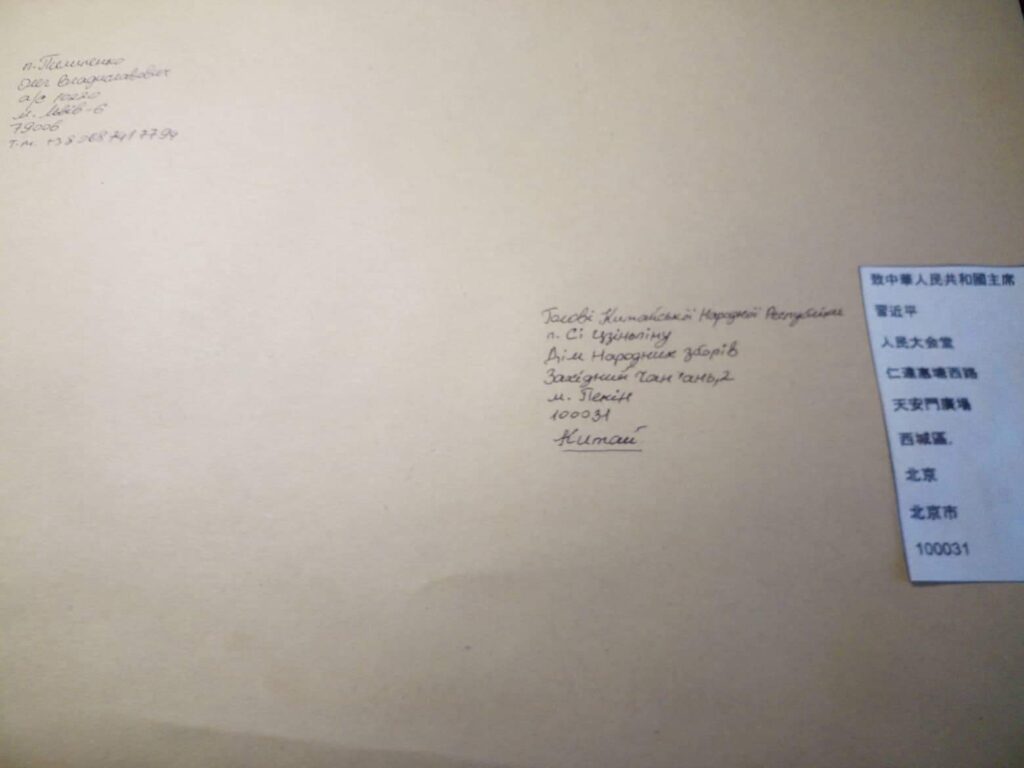 Олег Владиславович
а/с 10220
м. Львів-6
79006
Голові Китайської Народної Республіки
п. Сі Цзіньпіну
Дім Народних зборів
Західний Чан'ань,2
м. Пекін
100031
Китай
致中華人民共和國主席
習近平
人民大会堂
西路
天安門廣場
西城區,
北京
北京市
100031